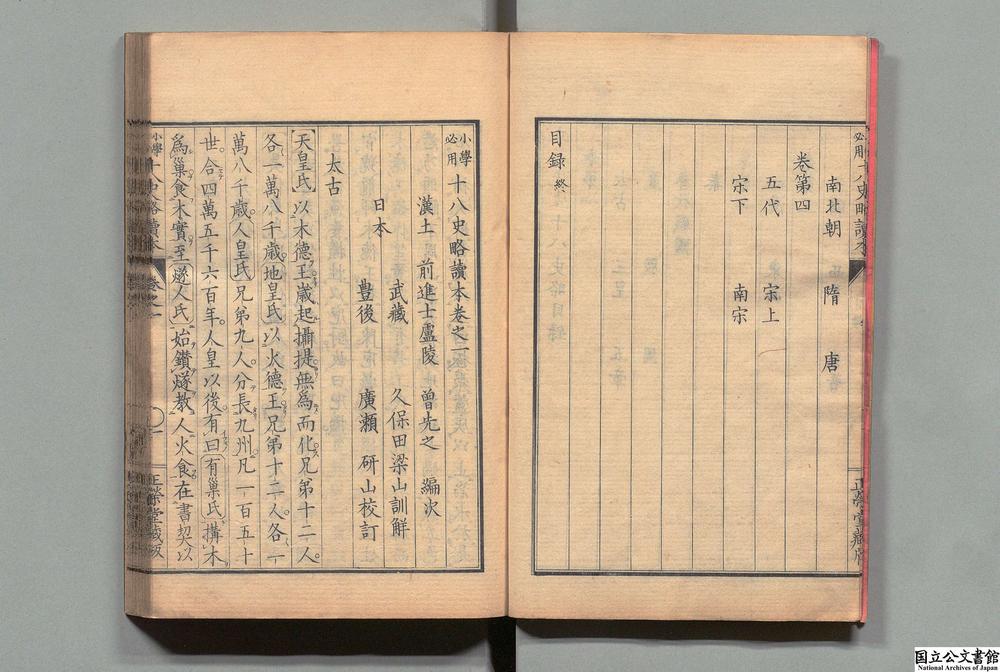 必用十八史略讀本
南北朝 隋 唐
卷第四
五代 宋上
宋下 南宋
目録 終
正榮堂藏版
小學必用 十八史略讀本卷之一
漢土 前進士盧陵 曾先之 編次
日本 武藏 久保田梁山訓解
豐後 廣瀬 研山校訂
太古
天皇氏以木德王歲起攝提無爲而化兄弟十二人
各一萬八千歲地皇氏以火德王兄弟十二人各一
萬八千歲人皇氏兄弟九人分長九州凡一百五十
世合四萬五千六百年人皇以後有曰有巢氏搆木
爲巢食木實至燧人氏始鑽燧教人火食在書契以
小學 十八史略讀本 卷之一
一
正榮堂藏版
国立公文書館
National Archives of Japan